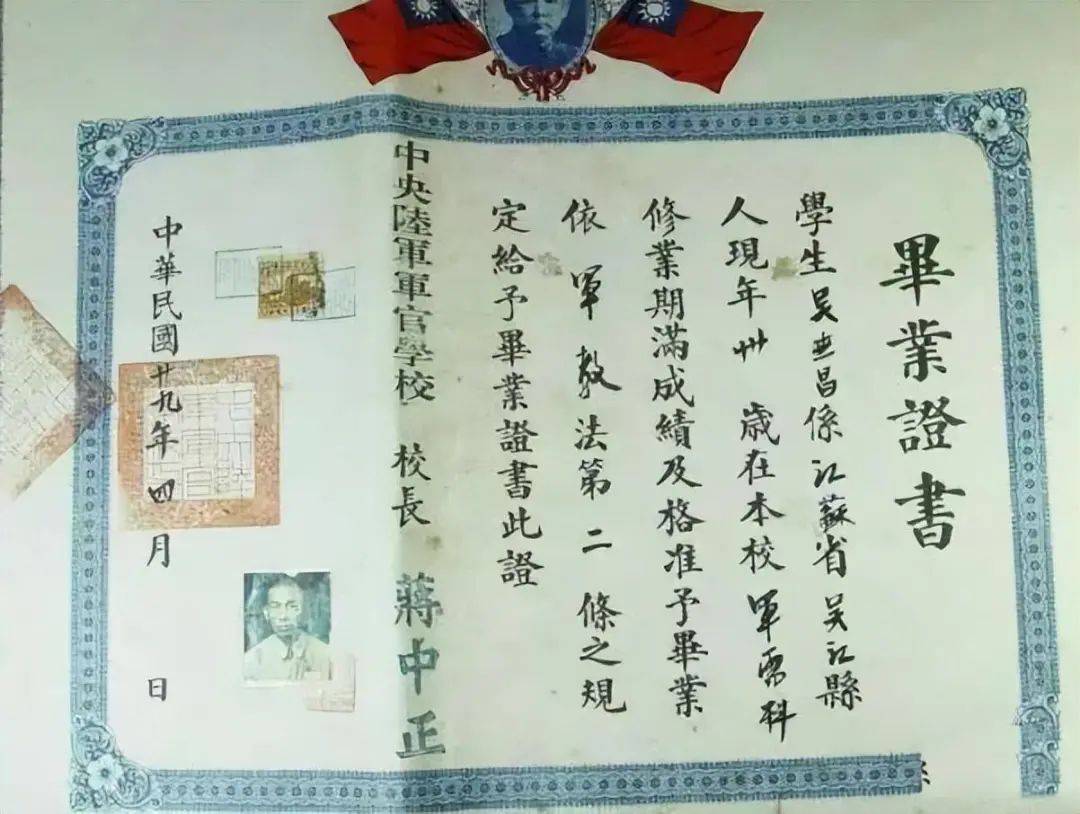 畢業證書
學生吳亚昌係江蘇省吴江縣
人現年卅歲在本校軍需科
修業期滿成績及格准予畢業
依軍教法第二條之規
定給予畢業證書此證
中央陸軍軍官學校 校長 蔣中正
中華民國廿九年四月 日